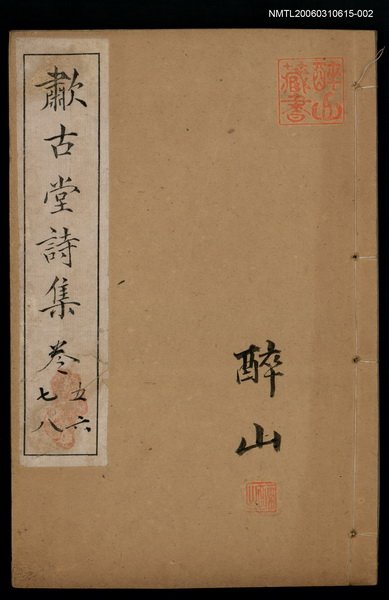 NMTL20060310615-002
醉山
藏書
醉山
歗古堂詩集 卷
五六
七八